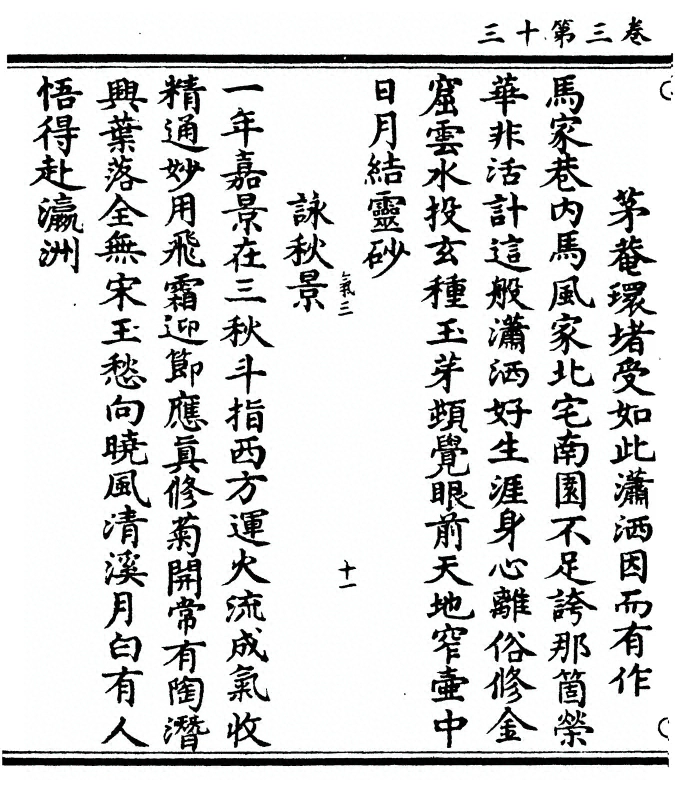 三十第三卷
茅菴環堵受如此瀟洒因而有作
馬家巷内馬風家北宅南園不足誇那箇榮
華非活計這般瀟洒好生涯身心離俗修金
窟雲水投玄種玉芽頻覺眼前天地窄壷中
日月結靈砂
氣三
十一
詠秋景
一年嘉景在三秋斗指西方運火流成氣收
精通妙用飛霜迎節應真修菊開常有陶潛
興葉落全無宋玉愁向曉風清溪月白有人
悟得赴瀛洲